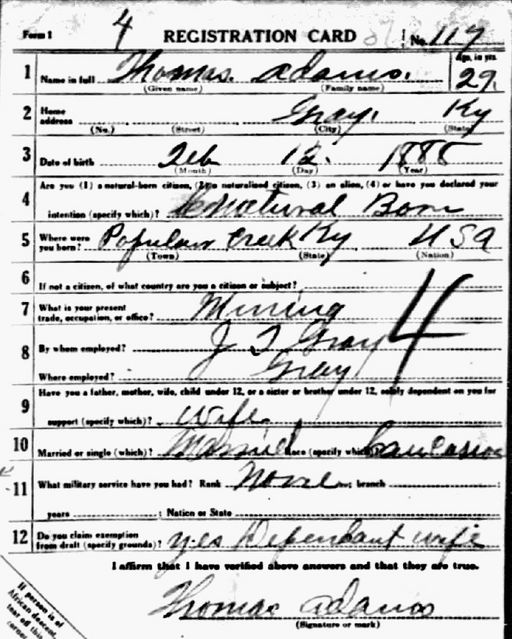 Form 1
4
REGISTRATION CARD
No. 117
1 Name in full Thomas. Adams. Age, in yrs. 29.
(Given name) (Family name)
2 Home address Gray. Ky
(No.) (Street) (City) (State)
3 Date of birth Feb 12. 1888
(Month) (Day) (Year)
4 Are you (1) a natural-born citizen, (2) a naturalized citizen, (3) an alien, (4) or have you declared your
intention (specify which)? Natural Born
5 Where were you born? Populaur Creek Ky USA
(Town) (State) (Nation)
6 If not a citizen, of what country are you a citizen or subject?
7 What is your present trade, occupation, or office? Mining
4
8 By whom employed? J T Gray
Where employed? Gray
9 Have you a father, mother, wife, child under 12, or a sister or brother under 12, solely dependent on you for
support (specify which)? wife.
10 Married or single (which)? Married Race (specify which)? Caucasion
11 What military service have you had? Rank None; branch
years; Nation or State
12 Do you claim exemption from draft (specify grounds)? yes Dependant wife
I affirm that I have verified above answers and that they are true.
Thomas Adams
(Signature or mark)
If person is of
African descent,
tear off this
corner